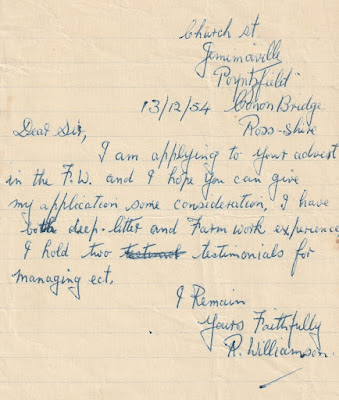 Church st
Jemimaville
Poyntzfield
13/12/54 Conon Bridge
Ross-shire
Dear Sir,
I am applying to your advert
in the F.W. and I hope you can give
my application some consideration. I have
both deep-litter and Farm work experience
I hold two testimonials for
managing ect.
I Remain
Yours Faithfully
R. Williamson.